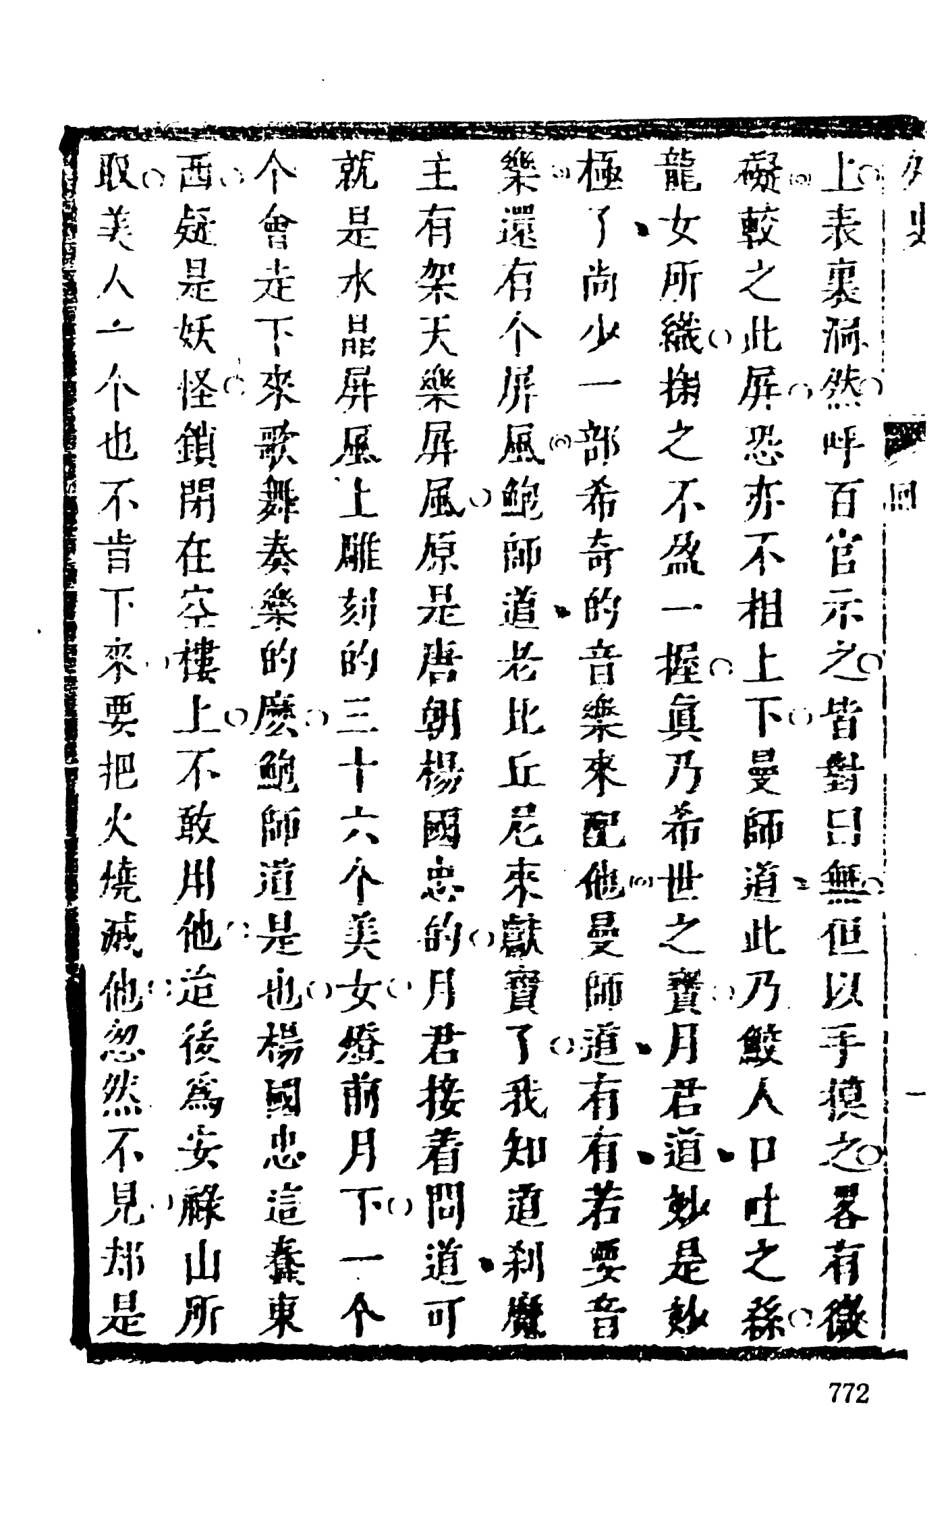 外史
回
一
上表裏洞然呼百官示之皆對曰無但以手摸之畧有微
礙較之此屏恐亦不相上下曼師道此乃鮫人口吐之絲
龍女所織掬之不盈一握眞乃希世之寶月君道妙是妙
極了尚少一部希奇的音樂來配他曼師道有有若要音
樂還有个屏風鮑師道老比丘尼來獻寶了我知道刹魔
主有架天樂屏風原是唐朝楊國忠的月君接着問道可
就是水晶屏風上雕刻的三十六个美女燈前月下一个
个會走下來歌舞奏樂的麽鮑師道是也楊國忠這蠢東
西疑是妖怪鎖閉在空樓上不敢用他迨後爲安祿山所
取美人亠个也不肯下來要把火燒滅他忽然不見却是
772